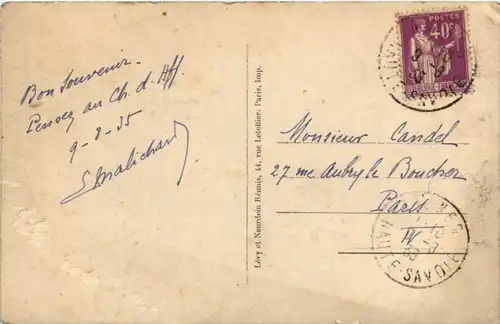 Bon Souvenir.
Pensez au Ch. d. Aff.
9-8-35
Lévy et Neurdein Réunis, 44, rue Letellier, Paris, Imp.
POSTES
40c
SAVOIE
Monsieur Candel
27 rue Aubry le Boucher
Paris
IV
HAUTE-SAVOIE